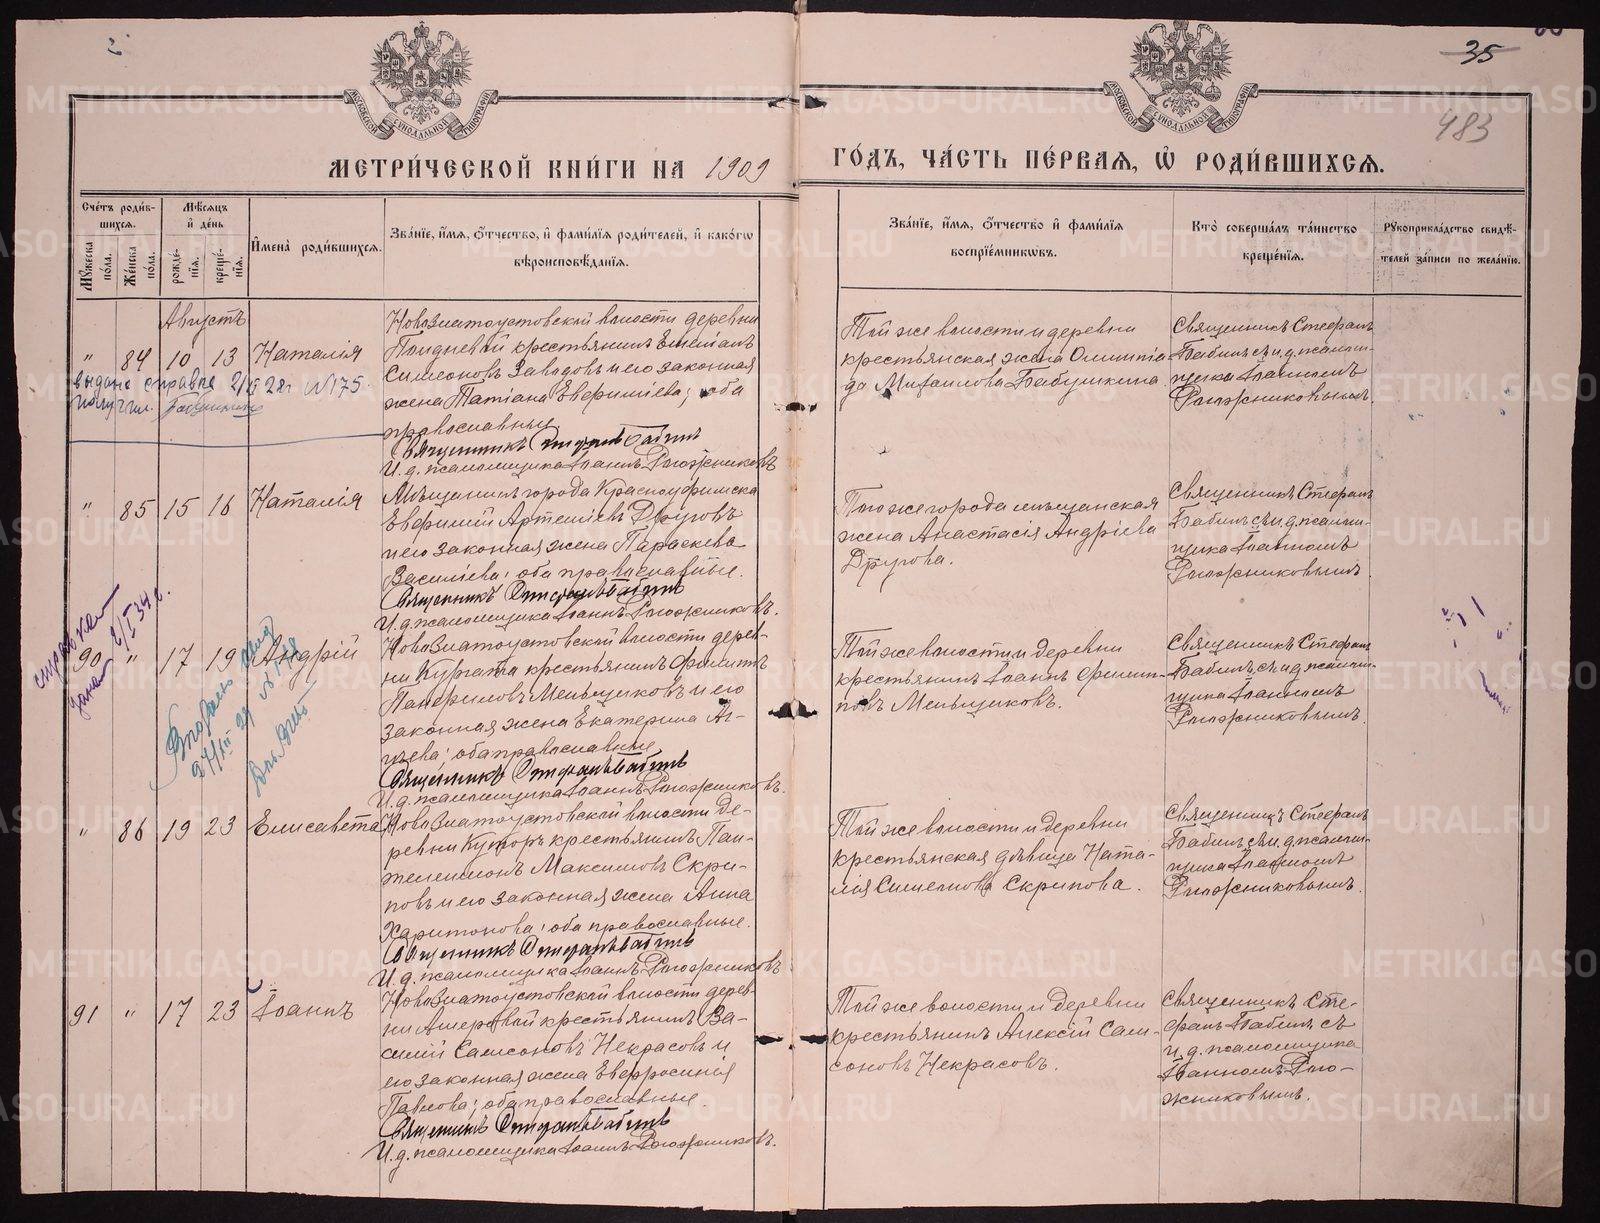 2
35
483
МОСКОВСКОЙ СѴНОДАЛЬНОЙ ТИПОГРАФІИ
МОСКОВСКОЙ СѴНОДАЛЬНОЙ ТИПОГРАФІИ
МЕТРИ́ЧЕСКОЙ КНИ́ГИ НА 1909
ГО́ДЪ, ЧА́СТЬ ПЕ́РВАЯ, Ѿ РОДИ́ВШИХСЯ.
Сче́тъ роди́в-
шихся.
Му́жеска по́ла.
Же́нска по́ла.
Мѣ́сяцъ
и҆ де́нь
рожде́-
нїя.
креще́-
нїя.
И҆мена̀ роди́вшихся.
Зва́нїе, и҆́мя, ѻ҆́тчество, и҆ фами́лїя роди́телей, и҆ како́гѡ
вѣроисповѣ́данїя.
Зва́нїе, и҆́мя, ѻ҆́тчество и҆ фами́лїя
воспрїе́мникѡвъ.
Кто̀ соверша́лъ та́инство
креще́нїя.
Рꙋкоприкла́дство свидѣ́-
телей за́писи по жела́нїю.
Августъ
" 84 10 13 Наталія
выдана справка 2/IX 28г. №175.
получил.
Новозлатоустовской волости деревни
крестьянинъ
Симеоновъ Заводовъ и его законная
жена Татіана Евфиміева; оба
православны
Священникъ Стефанъ Бабинъ
И. д. псаломщика Іоаннъ Рогожниковъ
Той же волости и деревни
крестьянская жена Олимпіа-
да Михаилова Бабушкина
Священникъ Стефанъ
Бабинъ съ и. д. псалом-
щика Іоанномъ
Рогожниковымъ.
" 85 15 16 Наталія
Мѣщанинъ города Красноуфимска
Евфимій Артеміевъ Друговъ
и его законная жена Параскева
Василіева; оба православные.
Священникъ Стефанъ Бабинъ
И. д. псаломщика Іоаннъ Рогожниковъ.
Того же города мѣщанская
жена Анастасія Андріева
Другова.
Священникъ Стефанъ
Бабинъ съ и. д. псалом-
щика Іоанномъ
Рогожниковымъ.
справка
дана 2/I 34 г.
90 " 17 19 Андрій
Новозлатоустовской волости дерев-
ни Кургата крестьянинъ Филиппъ
Панфиловъ Меньщиковъ и его
законная жена Екатерина Аг-
гѣева; оба православные
Священникъ Стефанъ Бабинъ
И. д. псаломщика Іоаннъ Рогожниковъ.
Той же волости и деревни
крестьянинъ Іоаннъ Филип-
повъ Меньщиковъ.
Священникъ Стефанъ
Бабинъ съ и. д. псалом-
щика Іоанномъ
Рогожниковымъ.
" 86 19 23 Елисавета
Новозлатоустовской волости де-
ревни Куторъ крестьянинъ Пан-
телеимонъ Максимовъ Скри-
повъ и его законная жена Анна
Харитонова; оба православные.
Священникъ Стефанъ Бабинъ
И. д. псаломщика Іоаннъ Рогожниковъ
Той же волости и деревни
крестьянская дѣвица Ната-
лія Симеонова Скрипова.
Священникъ Стефанъ
Бабинъ съ и. д. псалом-
щика Іоанномъ
Рогожниковымъ.
91 " 17 23 Іоаннъ
Новозлатоустовской волости дерев-
ни крестьянинъ Ва-
силій Самсоновъ Некрасовъ и
его законная жена Евфросинія
Павлова; оба православные.
Священникъ Стефанъ Бабинъ
И. д. псаломщика Іоаннъ Рогожниковъ.
Той же волости и деревни
крестьянинъ Алексій Сам-
соновъ Некрасовъ.
Священникъ Сте-
фанъ Бабинъ съ
и. д. псаломщика
Іоанномъ Рого-
жниковымъ.
METRIKI.GASO-URAL.RU